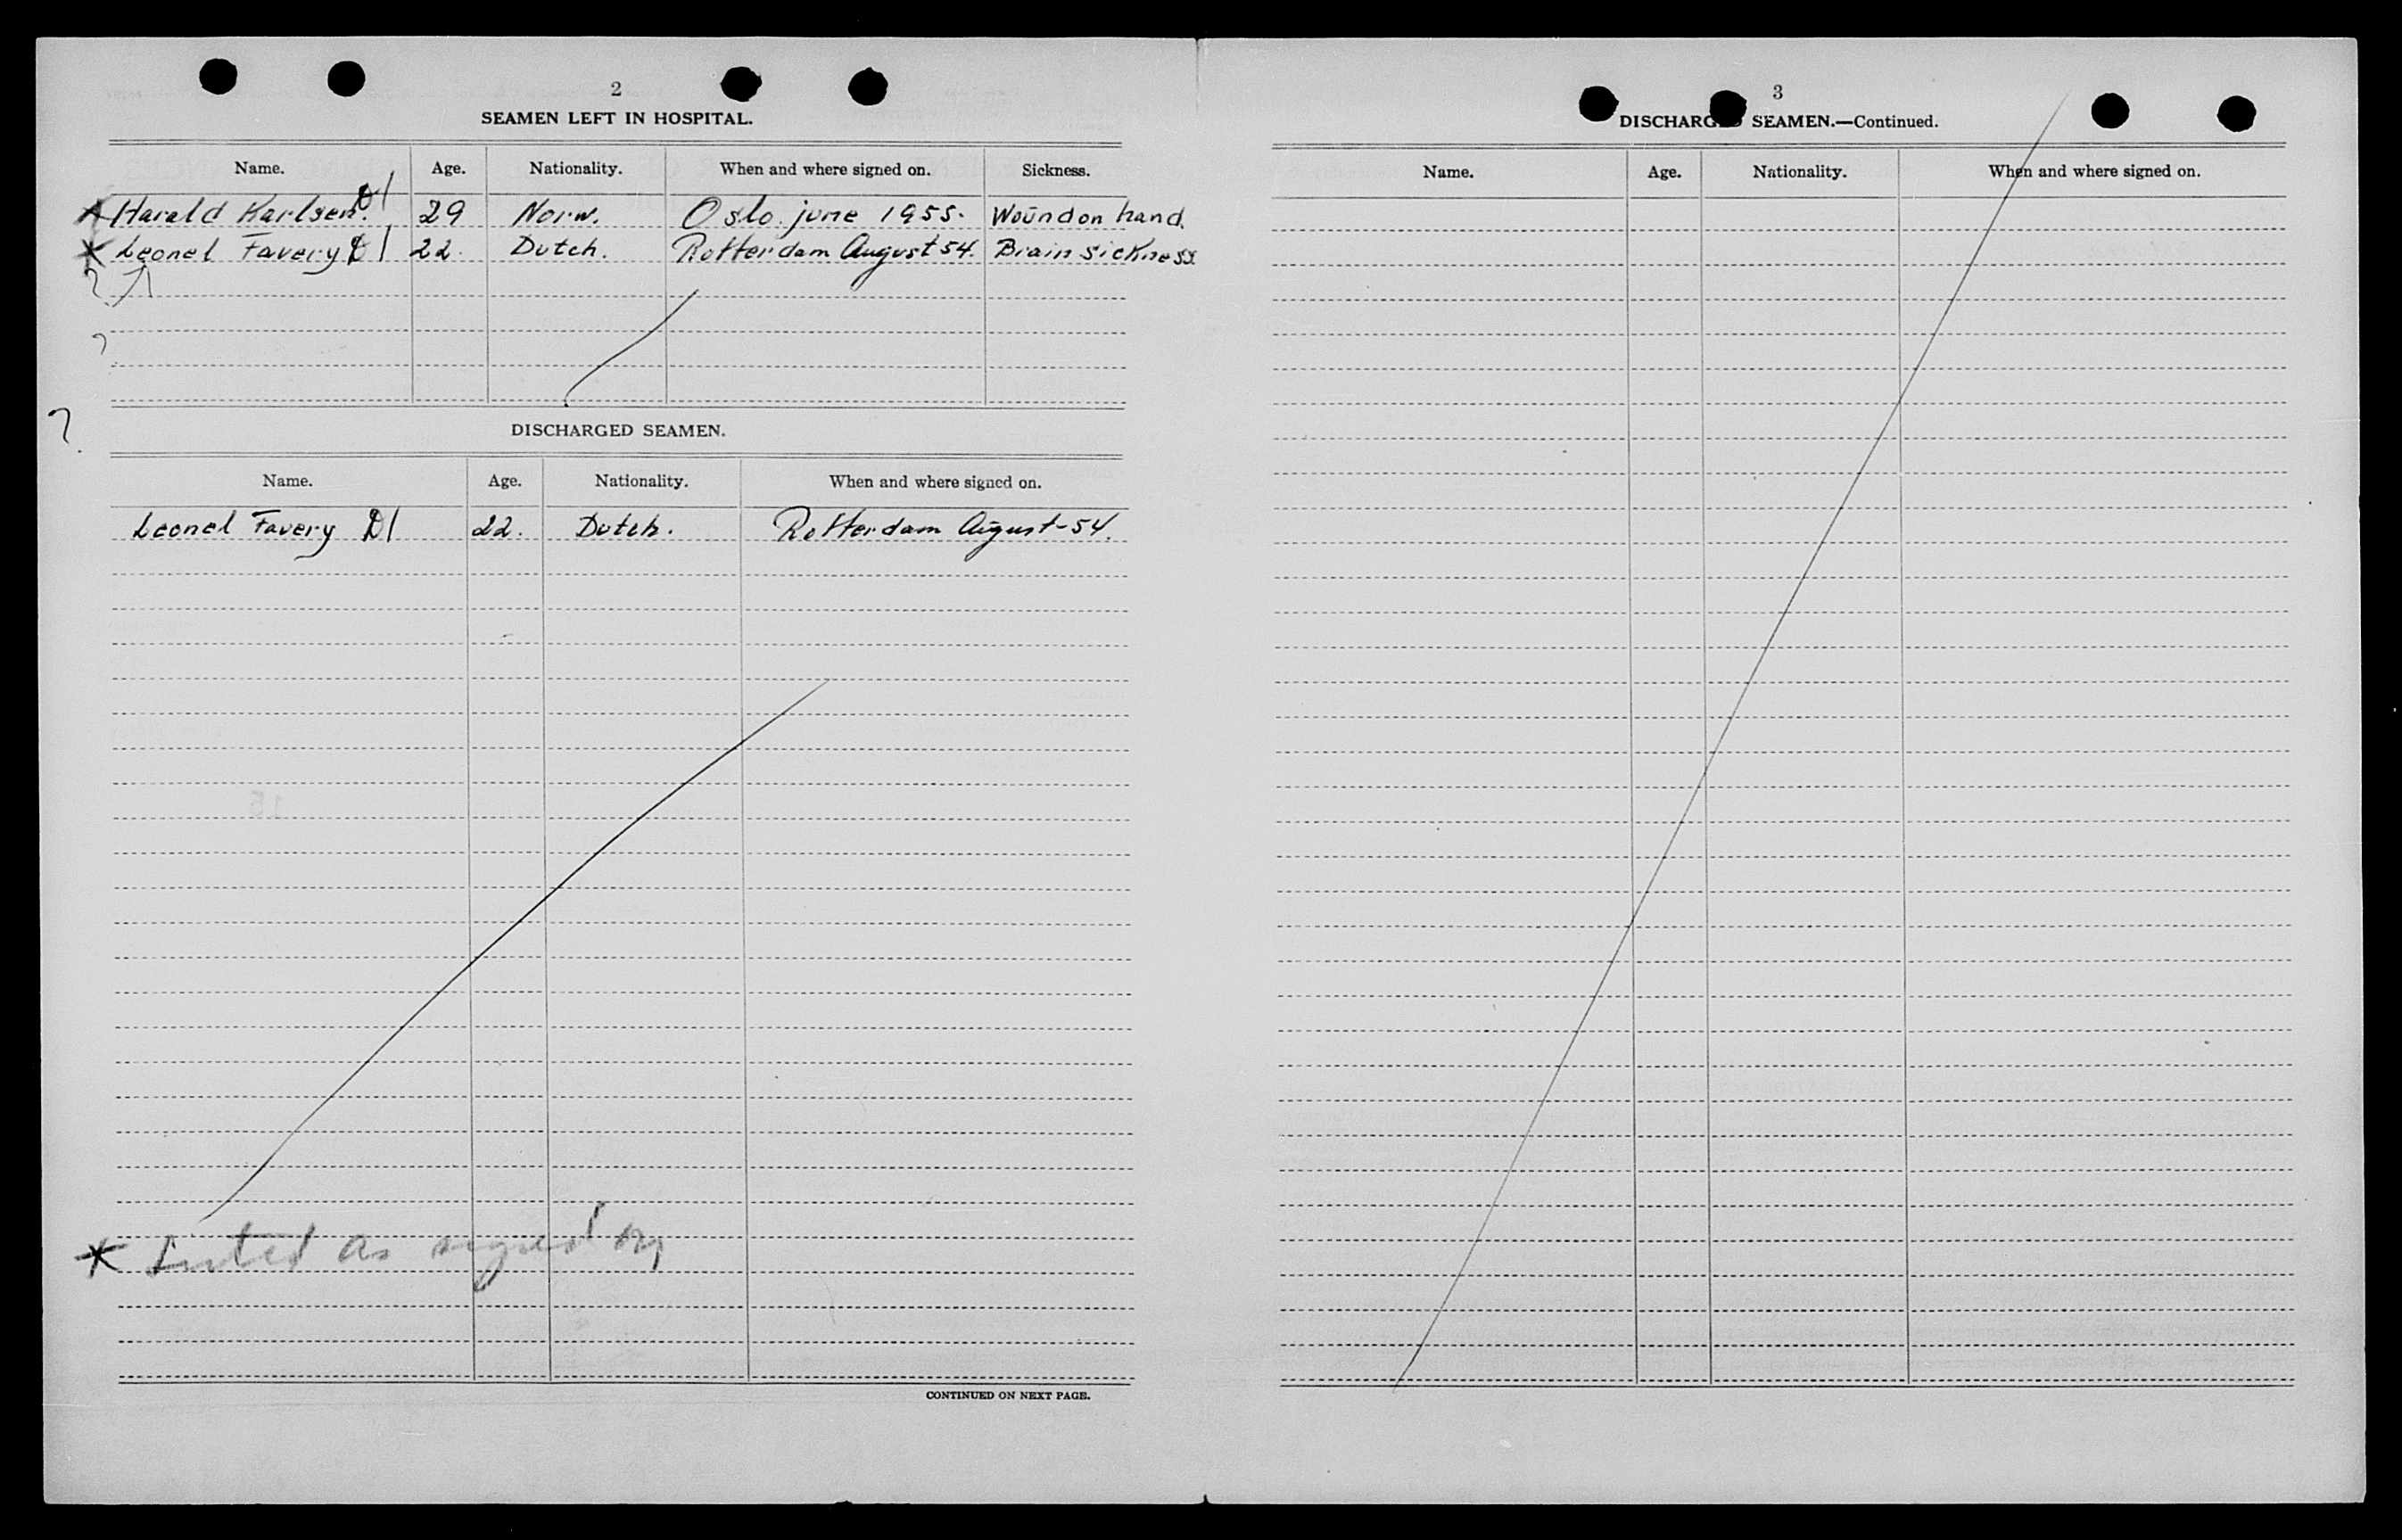 2
SEAMEN LEFT IN HOSPITAL.
Name. Age. Nationality. When and where signed on. Sickness.
* Harald Karlsen. D1 29 Norw. Oslo. june 1955. Wound on hand.
* Leonel Favery D1 22. Dutch. Rotterdam August 54. Brain sickness
?
?
?
DISCHARGED SEAMEN.
Name. Age. Nationality. When and where signed on.
Leonel Favery D1 22. Dutch. Rotterdam August-54.
* Listed as signed on
CONTINUED ON NEXT PAGE.
3
DISCHARGED SEAMEN.—Continued.
Name. Age. Nationality. When and where signed on.